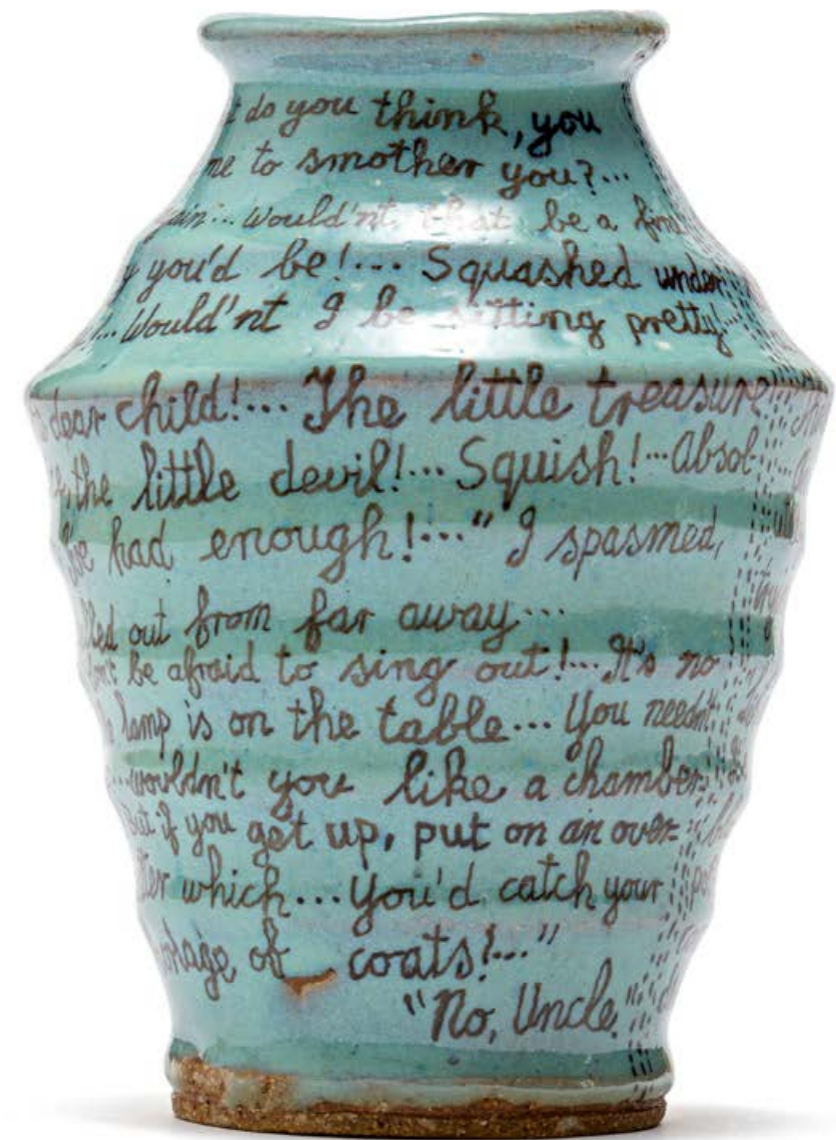 do you think, you
me to smother you?...
wouldn'nt that be a fine
you'd be!... Squashed under
... Would'nt I be sitting pretty!
dear child!... The little treasure
the little devil!... Squish!... Absol-
had enough!..." I spasmed,
out from far away...
be afraid to sing out!... It's no
lamp is on the table... You needn't
...wouldn't you like a chamber
But if you get up, put on an over-
which... You'd catch your
of coats!..."
"No, Uncle."